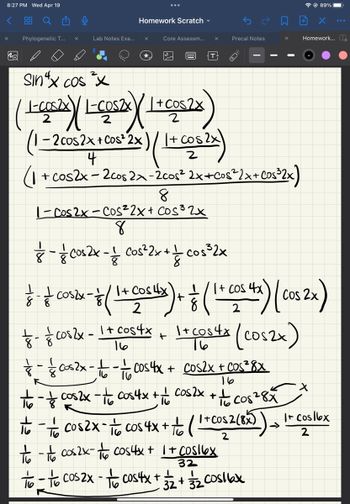 8:27 PM Wed Apr 19 ... 89%
Homework Scratch
Phylogenetic T... × Lab Notes Exa... × Core Assessm... × Precal Notes × Homework...
Sin⁴x cos²x
((1-cos2x)/2)((1-cos2x)/2)((1+cos2x)/2)
((1-2cos2x+cos²2x)/4)((1+cos2x)/2)
(1+cos2x-2cos2x-2cos²2x+cos²2x+cos³2x)/8
(1-cos2x-cos²2x+cos³2x)/8
1/8 - 1/8 cos2x - 1/8 cos²2x + 1/8 cos³2x
1/8 - 1/8 cos2x - 1/8((1+cos4x)/2) + 1/8((1+cos4x)/2)(cos2x)
1/8 - 1/8 cos2x - (1+cos4x)/16 + (1+cos4x)/16 (cos2x)
1/8 - 1/8 cos2x - 1/16 - 1/16 cos4x + (cos2x+cos²8x)/16
1/16 - 1/8 cos2x - 1/16 cos4x + 1/16 cos2x + 1/16 cos²8x x
1/16 - 1/16 cos2x - 1/16 cos4x + 1/16((1+cos2(8x))/2) → (1+cos16x)/2
1/16 - 1/16 cos2x - 1/16 cos4x + (1+cos16x)/32
1/16 - 1/16 cos2x - 1/16 cos4x + 1/32 + 1/32 cos16x